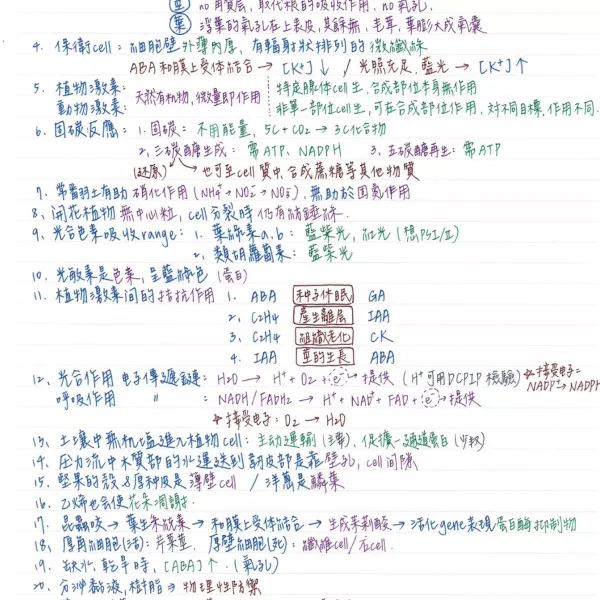 莖 no角質層，取代根的吸收作用，no氣孔.
葉 浮葉的氣孔在上表皮，其餘無，毛茸，葉膨大成氣囊
4. 保衛cell：細胞壁外薄內厚，有輻射狀排列的微纖絲
ABA和膜上受体結合 → [K+]↓ / 光照充足，藍光 → [K+]↑
5. 植物激素： 天然有机物，微量即作用 特定腺体cell生，合成部位本身無作用
動物激素： 非單一部位cell生，可在合成部位作用，對不同目標，作用不同.
6. 固碳反應：1. 固碳：不用能量，5C+CO2 → 3C化合物
2. 三碳醣生成：需ATP、NADPH 3. 五碳醣再生：需ATP
(還原) 也可至cell質中，合成蔗糖等其他物質
7. 常翻土有助硝化作用 (NH4+→NO2-→NO3-)，無助於固氮作用
8. 開花植物無中心粒，cell分裂時仍有紡錘絲.
9. 光合色素吸收range：1. 葉綠素a.b：藍紫光，紅光 (想PSI/II)
2. 類胡蘿蔔素：藍紫光
10. 光敏素是色素，呈藍綠色 (蛋白)
11. 植物激素間的拮抗作用 1. ABA 種子休眠 GA
2. C2H4 產生離層 IAA
3. C2H4 組織老化 CK
4. IAA 莖的生長 ABA
12. 光合作用 電子傳遞鏈：H2O → H+ + O2 + e- → 提供 (H+可用DCPIP檢驗) *接受電子：NADP+→NADPH
呼吸作用 〃 ：NADH/FADH2 → H+ + NAD+ + FAD + e- → 提供
*接受電子：O2 → H2O
13. 土壤中無机塩進入植物cell：主動運輸(主要)，促擴－通道蛋白(少數)
14. 壓力流中木質部的水運送到韌皮部是靠壁孔，cell間隙
15. 堅果的殼&厚种皮是薄壁cell / 洋蔥是鱗葉
16. 乙烯也会使花朵凋謝.
17. 昆蟲咬 → 葉生系統素 → 和膜上受体結合 → 生成茉莉酸 → 活化gene表現蛋白酶抑制物
18. 厚角細胞(活)：芹菜莖. 厚壁細胞(死)：纖維cell/石cell.
19. 缺水，乾旱時，[ABA]↑. (氣孔)
20. 分泌黏液，樹脂 ⇒ 物理性防禦